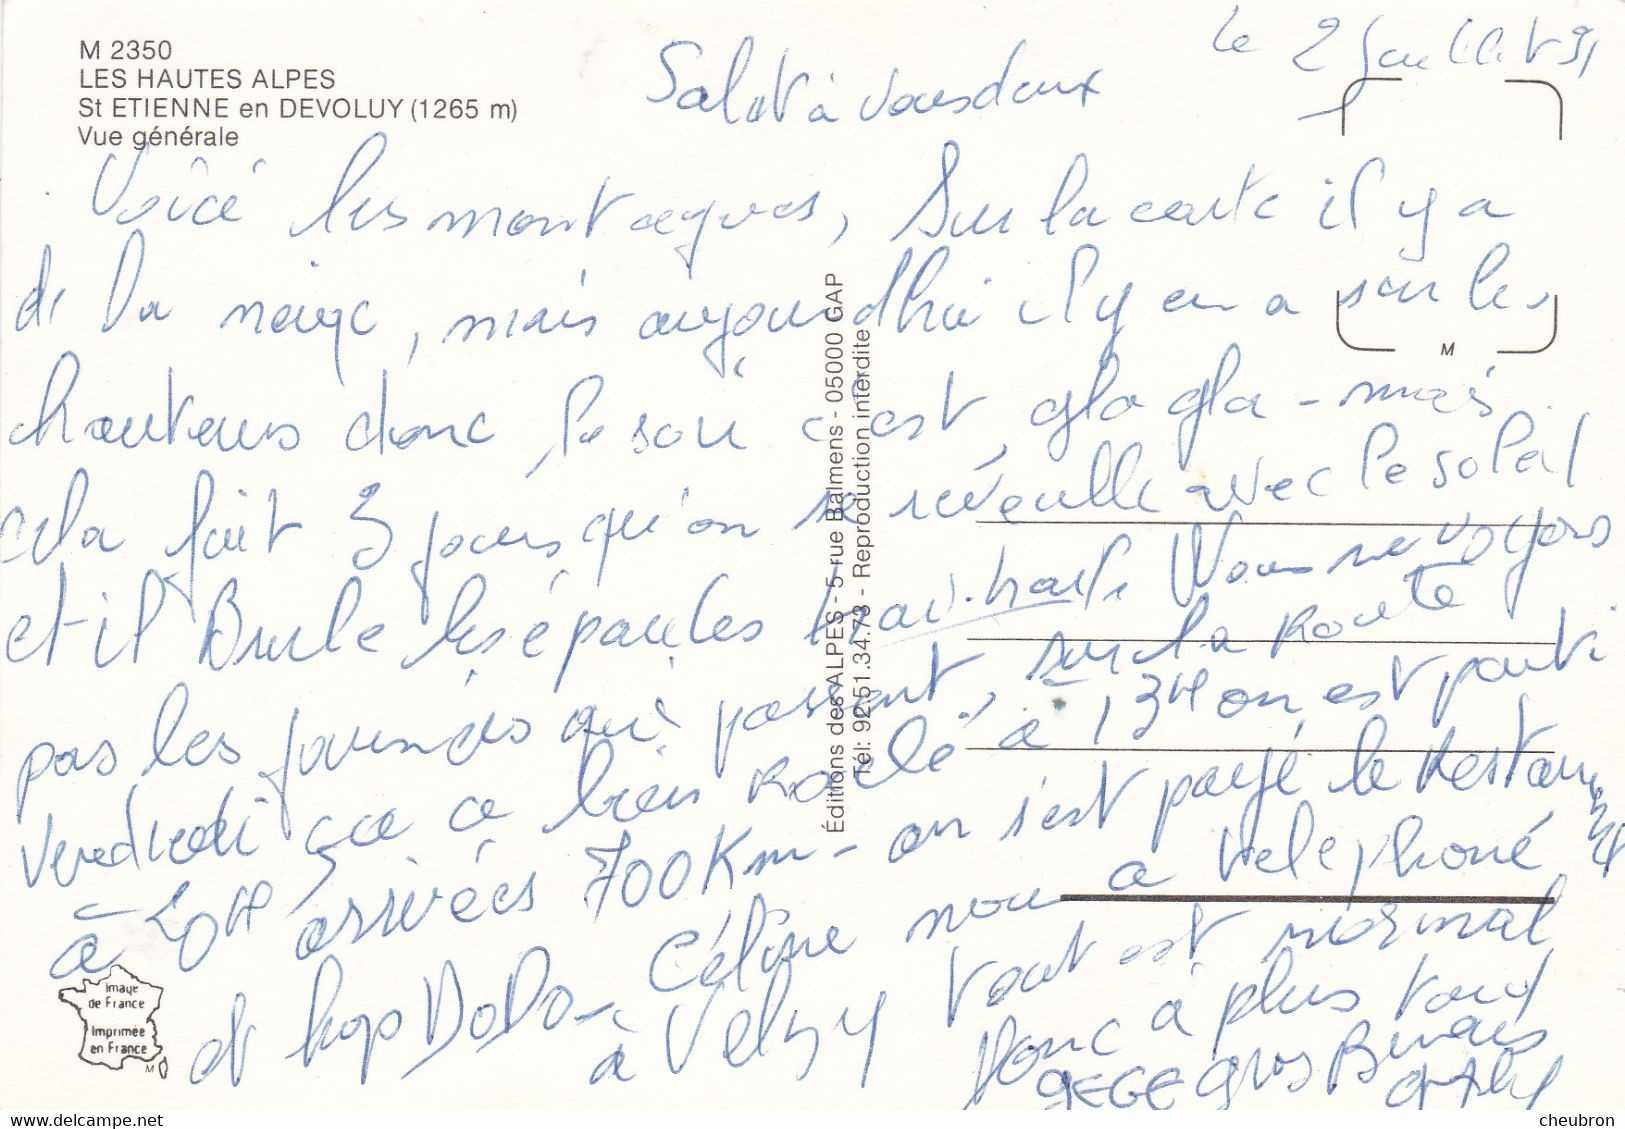 M 2350
LES HAUTES ALPES
St ETIENNE en DEVOLUY (1265 m)
Vue générale
le 2 Juillet 91
Salut à vous deux
Voici les montagnes, Sur la carte il y a
de la neige, mais aujourd'hui il y en a sur les
hauteurs donc le soir c'est gla gla - mais
cela fait 3 jours qu'on se réveille avec le soleil
et il Brule les épaules Nous ne voyons
pas les journées qui passent, sur la Route
vendredi ça a bien Roulé à 13H on est parti
à 20H arrivées 700Km - on s'est payé le Restaurant
et hop DoDo - Céline nous a telephoné
à Velizy tout est normal
donc à plus tard
GEGE gros Bisous
Éditions des ALPES - 5 rue Balmens - 05000 GAP
Tél: 92.51.34.73 - Reproduction interdite
M
Image
de France
Imprimée
en France
M
cheubron